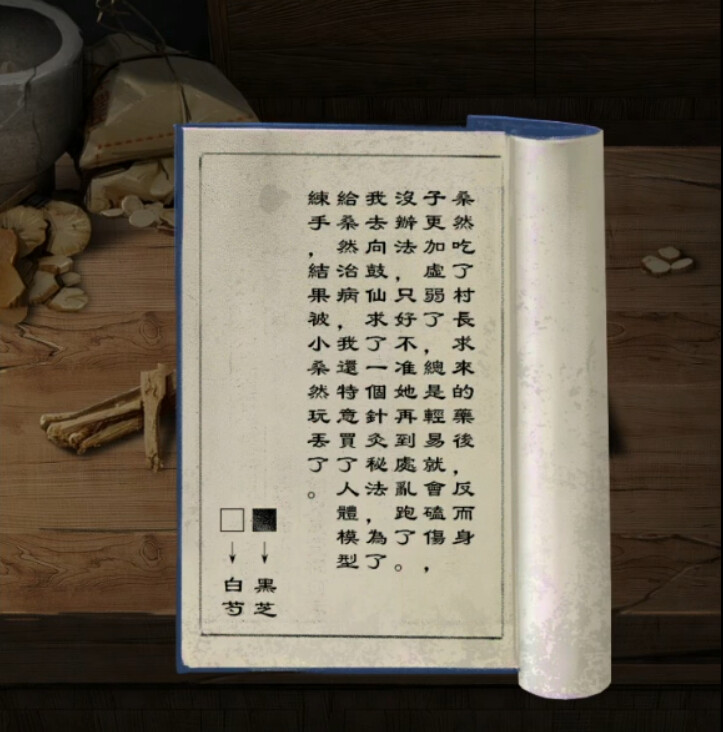 桑然吃了村長求來的藥後，反而身
子更加虛弱了，總是輕易就會磕傷，
沒辦法，只好不准她再到處亂跑了。
我去向鼓仙求了一個針灸秘法，為了
給桑然治病，我還特意買了人體模型
練手，結果被小桑然玩丟了。
黑芝
白芍